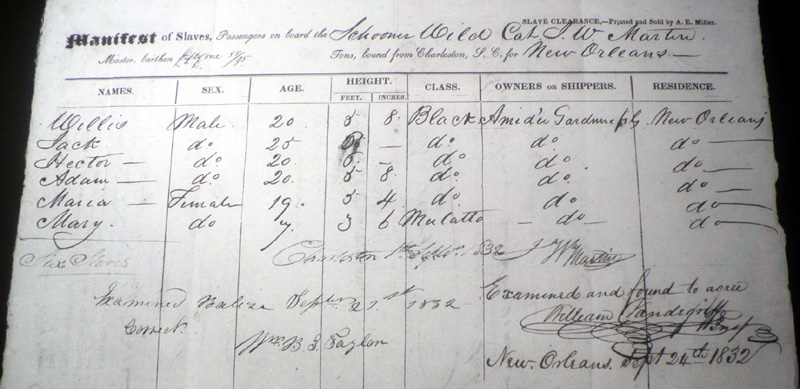 SLAVE CLEARANCE,—Printed and Sold by A. E. Miller.
Manifest of Slaves, Passengers on board the Schooner Wild Cat J. W Martin.
Master, burthen fifty one 55/95 Tons, bound from Charleston, S. C. for New Orleans—
NAMES. SEX. AGE. HEIGHT. CLASS. OWNERS or SHIPPERS. RESIDENCE.
FEET. INCHES.
Willis Male 20 5 8 Black Gardinne New Orleans
Jack do 25 — do do do —
Hector — do 20. 5 — do do do —
Adam — do 20 5 8. do do. do —
Maria — Female 19. 5 4. do do do —
Mary. do 7 3 6 Mulatto — do — do —
Charleston 1st Septr. 1832 J W Martin
Six Slaves
Examined Balize Septr 21st 1832
Correct.
Wm. B. G. Taylor
Examined and found to agree
William Vandegriff
Insp
New Orleans. Sept 24th 1832